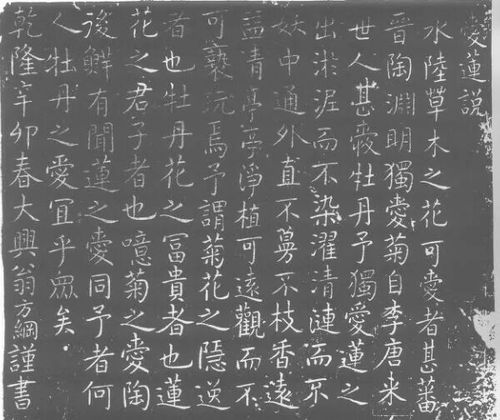 愛蓮説
水陸草木之花可愛者甚蕃
晉陶淵明獨愛菊自李唐来
世人甚愛牡丹予獨愛蓮之
出淤泥而不染濯清漣而不
妖中通外直不蔓不枝香遠
益清亭亭淨植可遠觀而不
可褻玩焉予謂菊花之隱逸
者也牡丹花之冨貴者也蓮
花之君子者也噫菊之愛陶
後鮮有聞蓮之愛同予者何
人牡丹之愛宜乎眾矣
乾隆辛卯春大興翁方綱謹書